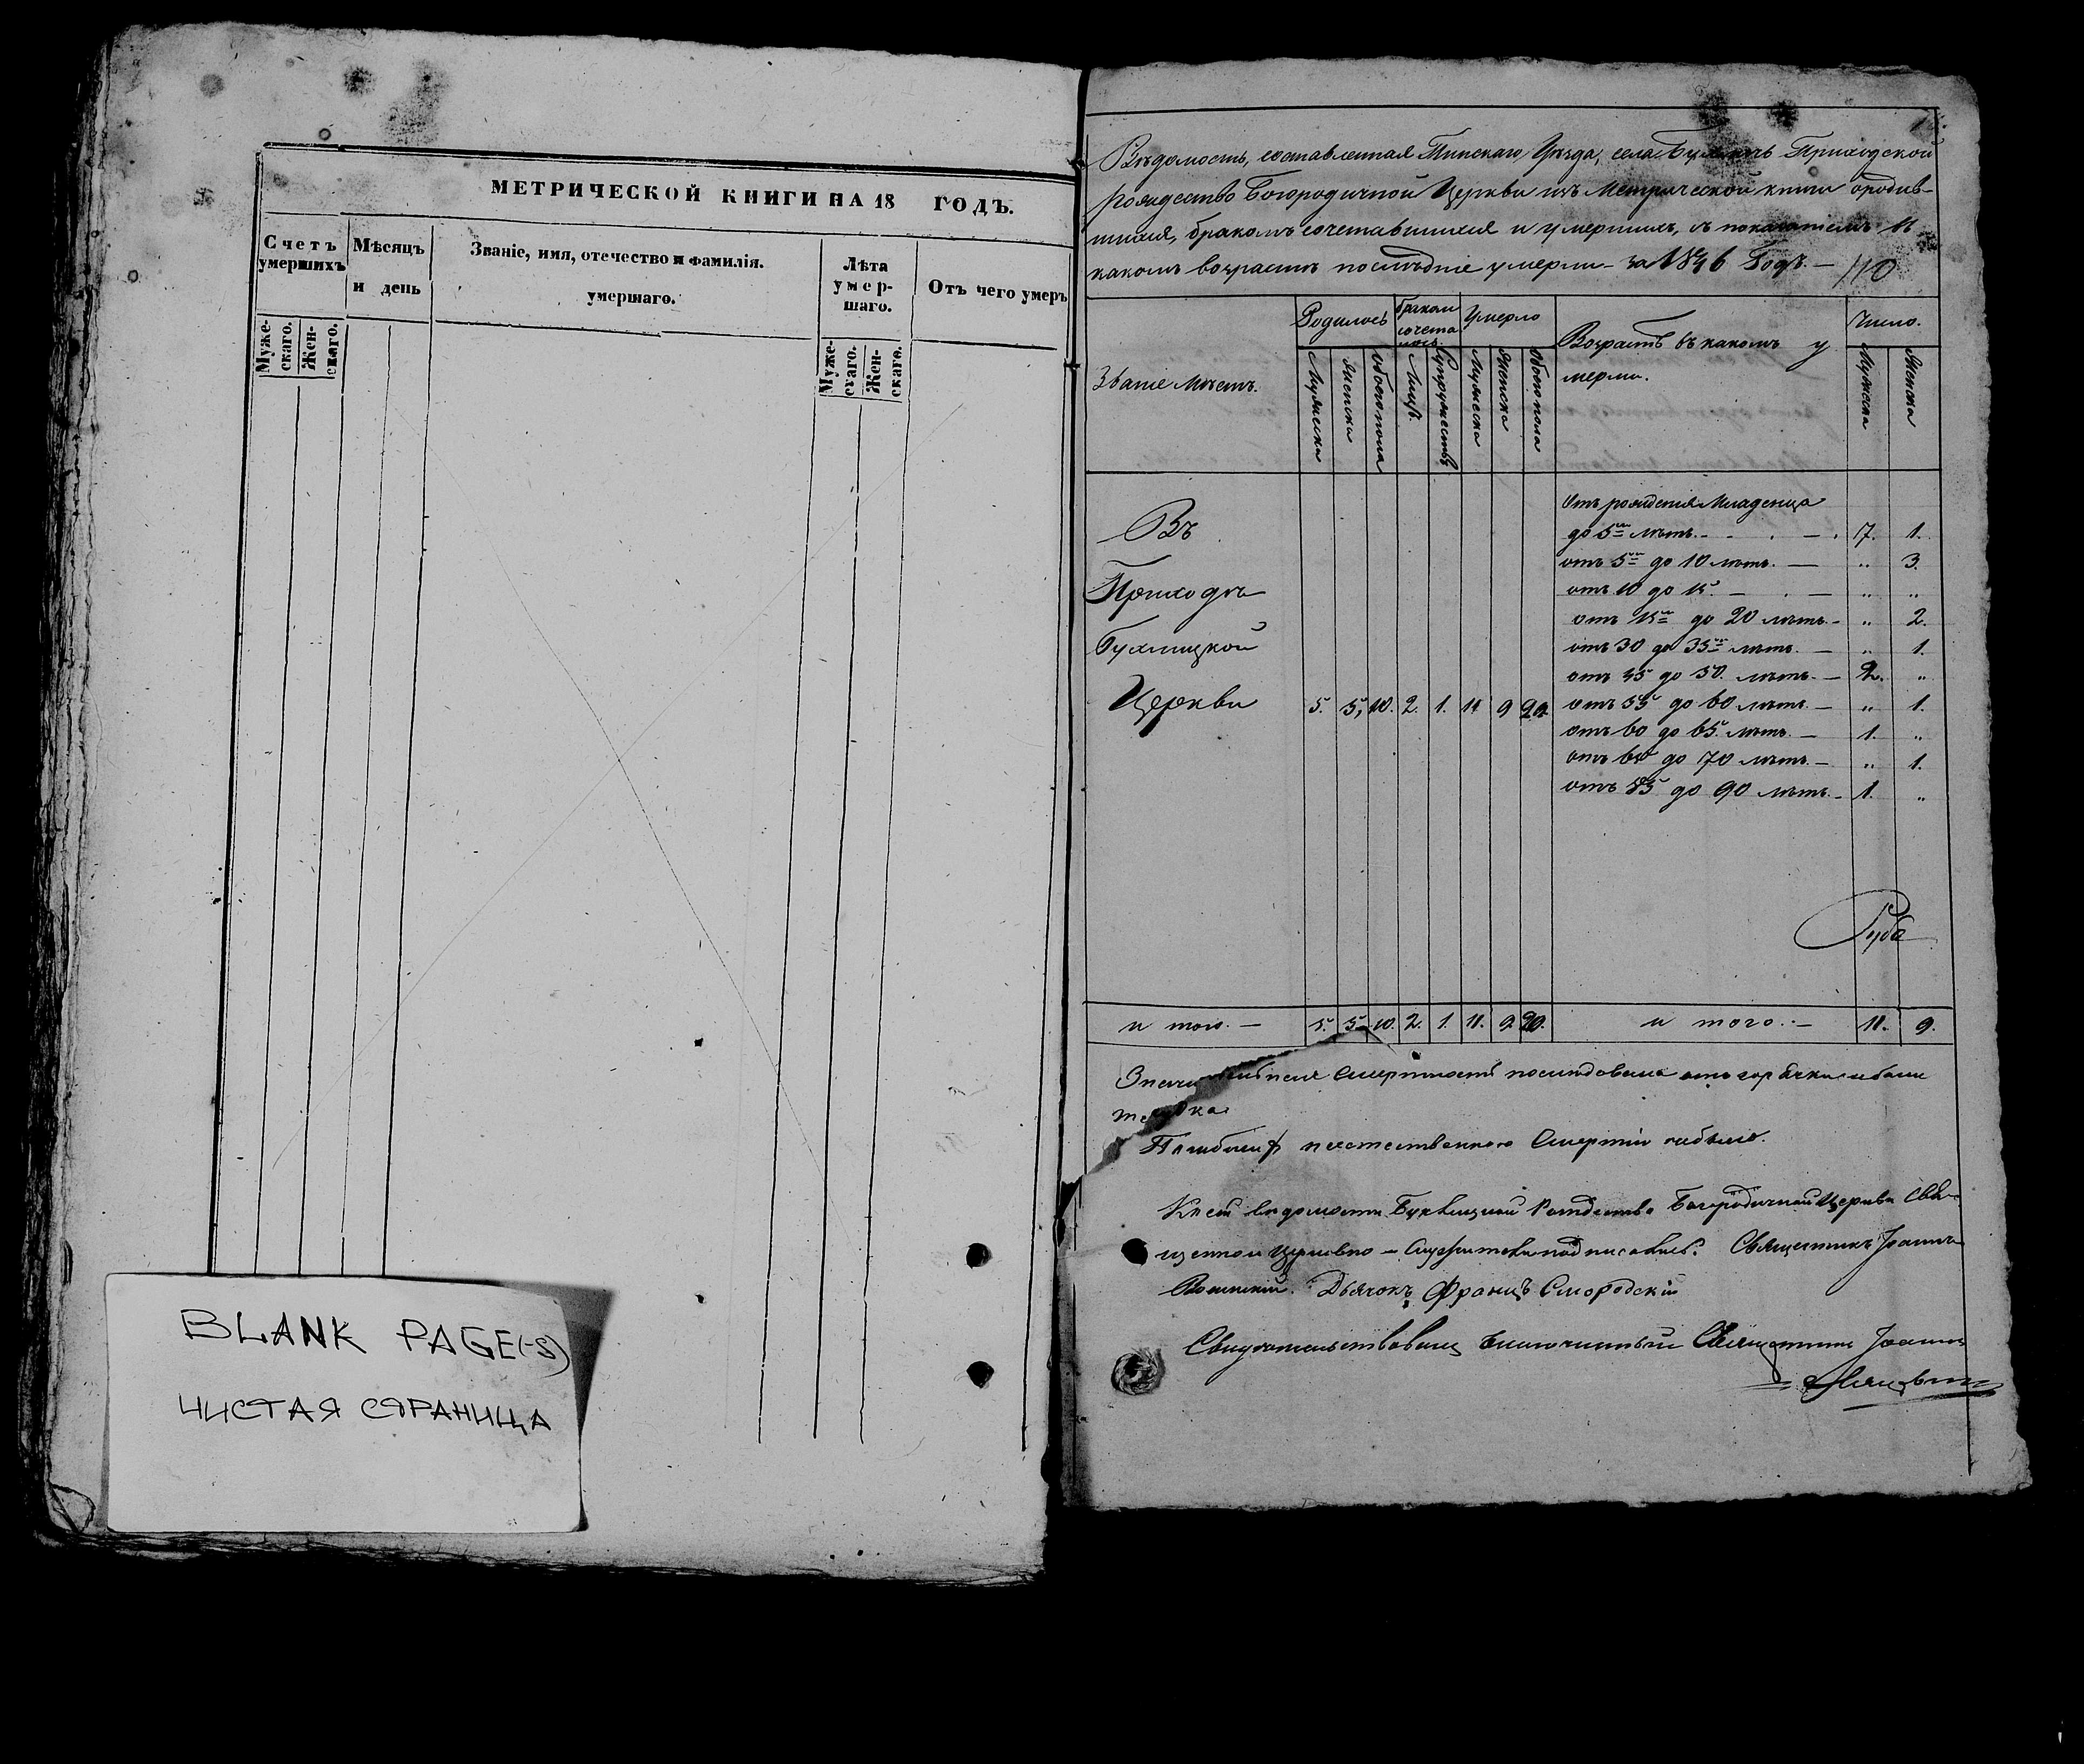 МЕТРИЧЕСКОЙ КНИГИ НА 18 ГОДЪ.
Счетъ умершихъ
Мѣсяцъ и день
Званіе, имя, отечество и фамилія.
умершаго.
Лѣта умер-
шаго.
Отъ чего умеръ
Муже-
скаго.
Жен-
скаго.
Муже-
скаго.
Жен-
скаго.
BLANK PAGE(-S)
ЧИСТАЯ СТРАНИЦА
Вѣдомость, составленная Пинскаго Уѣзда, села Приходской
рождество Богородичной Церкви изъ Метрической книги ородив-
шихся, бракомъ сочетавшихся и умершихъ, съ показаніемъ въ
какомъ возрастѣ послѣдніе умерли за 1846 Годъ. — 110
Званіе мѣстъ.
Родилось
бракомъ сочета
лось.
Умерло
Возрастъ въ какомъ у
мерли.
Число.
Мужеска
Женска
Обоего пола
Лицъ.
Супружествъ
Мужеска
Женска
Обоего пола
Мужеска
Женска
Отъ рожденія Младенца
Въ
до 5 лѣтъ. — 7. 1.
отъ 5 до 10 лѣтъ. — „ 3.
Приходѣ
отъ 10 до 15. — „ „
отъ 15 до 20 лѣтъ. — „ 2.
Бухлицкой
отъ 30 до 35 лѣтъ. — „ 1.
отъ 45 до 50 лѣтъ. — 2. „
Церкви 5. 5. 10. 2. 1. 11 9 20 отъ 55 до 60 лѣтъ. — „ 1.
отъ 60 до 65 лѣтъ. — 1. „
отъ 65 до 70 лѣтъ. — „ 1.
отъ 85 до 90 лѣтъ. — 1. „
и того. — 5. 5. 10. 2. 1. 11. 9. 20. и того. — 11. 9.
смертность послѣдовала отъ горячки и боли
смертію небыло.
Къ сей вѣдомости Рождество Богородичной Церкви Свя-
щенно и Церковно — Служители подписались. Священникъ Іоаннъ
Дьячокъ Францъ Смородскій
Свидѣтельствовалъ Благочинный Священникъ Іоаннъ